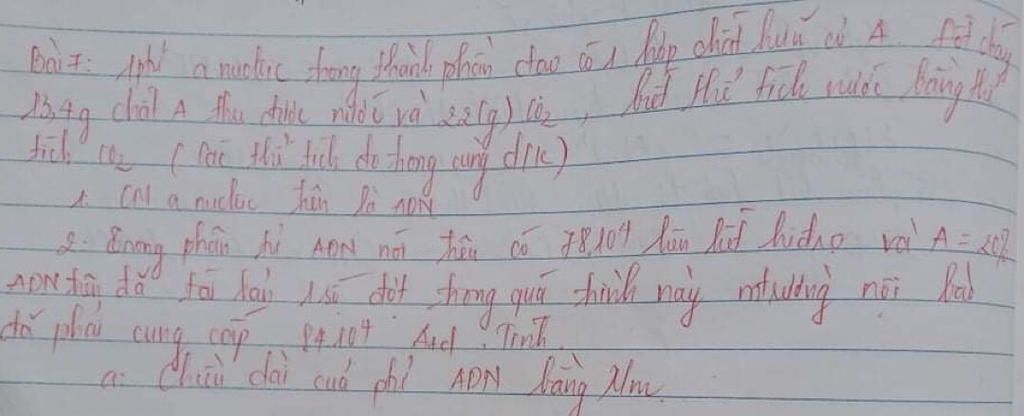 Bài 7: 1 phtử a nucleic trong thành phần đtạo có 1 hợp chất hữu cơ A. Đốt cháy
13,4g chất A thu được nước và 22(g) CO2, biết thể tích nước bằng thể
tích CO2 (các thể tích đo trong cùng đ/k)
1. CM a nucleic trên là ADN
2. Trong phân tử ADN nói trên có 78.10⁴ liên kết hidro và A = 20%
ADN trên đã tái bản 1 số đợt trong quá trình này mtrường nội bào
đã phải cung cấp 84.10⁴ A+d. Tính.
a. Chiều dài của ptử ADN bằng Mm.